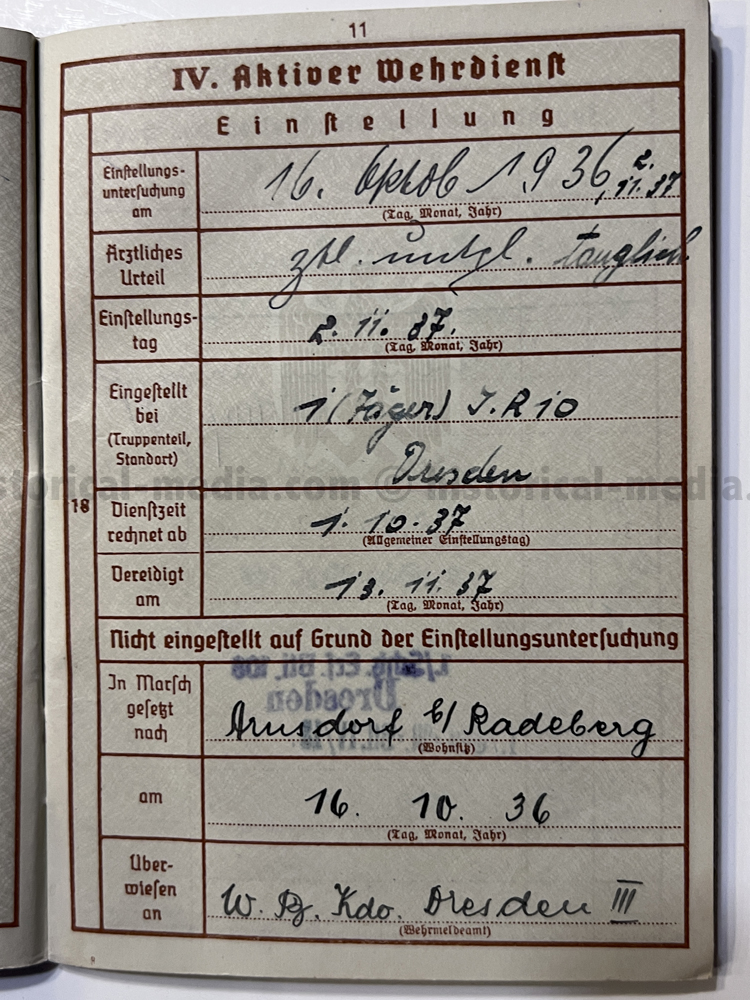 11
IV. Aktiver Wehrdienst
Einstellung
Einstellungs-
untersuchung
am
16. Oktob 1936, 2.
11. 37
(Tag, Monat, Jahr)
Ärztliches
Urteil
ztl. untgl. tauglich
Einstellungs-
tag
2. 11. 37.
(Tag, Monat, Jahr)
Eingestellt
bei
(Truppenteil,
Standort)
1 (Jäger) I.R 10
Dresden
historical-media.com © historical-media.
18
Dienstzeit
rechnet ab
1. 10. 37
(Allgemeiner Einstellungstag)
Vereidigt
am
13. 11. 37
(Tag, Monat, Jahr)
Nicht eingestellt auf Grund der Einstellungsuntersuchung
In Marsch
gesetzt
nach
Dresden
Arnsdorf b/ Radeberg
(Wohnsitz)
am
16. 10. 36
(Tag, Monat, Jahr)
Über-
wiesen
an
W. Bz. Kdo. Dresden III
(Wehrmeldeamt)
9